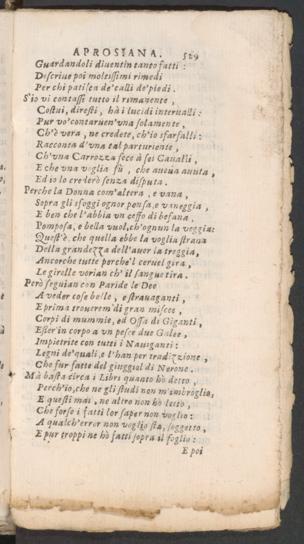 APROSIANA. 529
Guardandoli diventin tanto fatti:
Descrive poi moltissimi rimedi
Per chi patisca de'calli de'piedi.
S'io vi contassi tutto il rimanente,
Costui, diresti, hà i lucidi intervalli:
Pur vo'contarven'vna solamente,
Ch'è vera, ne credete, ch'io sfarfalli:
Racconta d'vna tal parturiente,
Ch'vna Carrozza fece à sei Cavalli,
E che vna voglia fù, che aveua avuta,
Ed io lo crederò senza disputa.
Perche la Donna com'altera, e vana,
Sopra gli sfoggi ognor pensa, e vaneggia,
E ben che l'abbia vn ceffo di befana,
Pomposa, e bella vuol, ch'ognun la veggia:
Quest'è che quella ebbe la voglia strana
Della grandezza dell'aver la treggia,
Ancorche tutte perche'l cervel gira,
Le girelle vorian ch'il sangue tira.
Però seguian con Paride le Dee
A veder cose belle, e stravaganti,
E prima troverem di gran miscee,
Corpi di mummie, ed Ossa di Giganti,
Esser in corpo a vn pesce due Galee,
Impietrite con tutti i Naviganti:
Legni de'quali e l'han per tradizzione,
Che fur fatte del giuggiol di Nerone.
Mà basta circa i Libri quanto hò detto,
Perch'io, che ne gli studi non m'imbròglio,
E questi mai, ne altro non hò letto,
Che forse i fatti lor saper non voglio:
A qualch'error non voglio sta, soggetto,
E pur troppi ne hò fatti sopra il foglio:
E poi